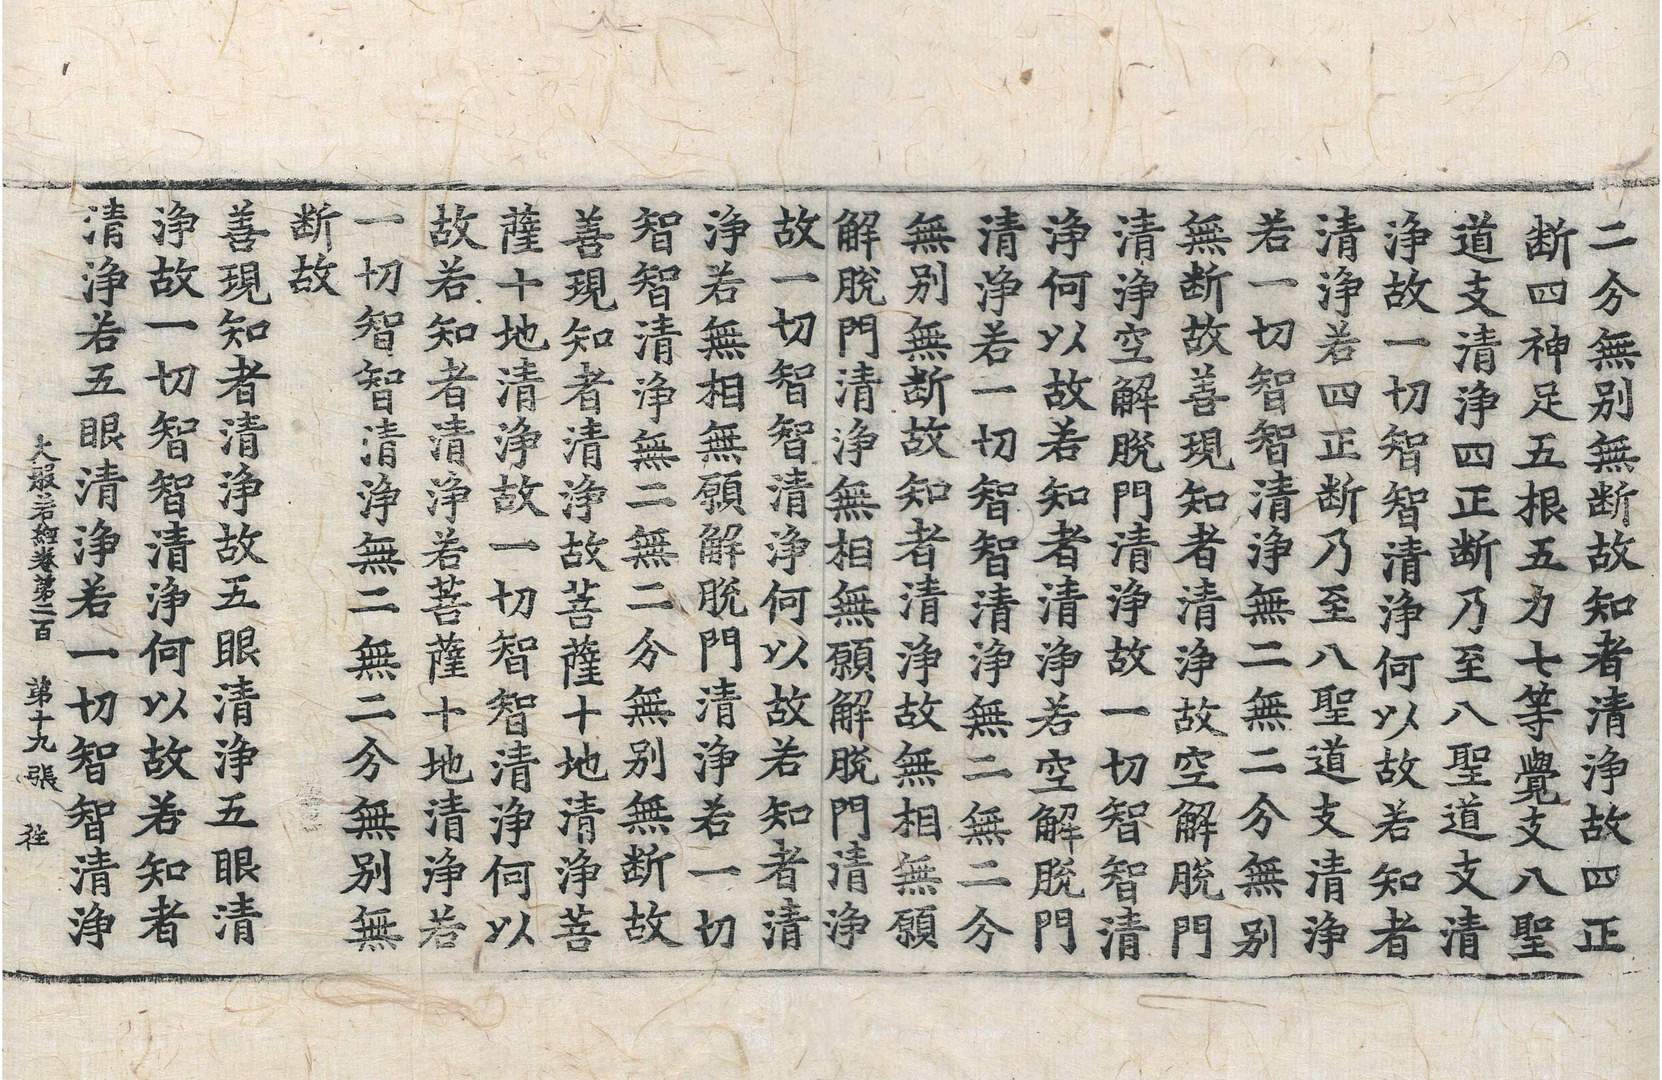 二分無別無断故知者清淨故四正
断四神足五根五力七等覺支八聖
道支清淨四正断乃至八聖道支清
淨故一切智智清淨何以故若知者
清淨若四正断乃至八聖道支清淨
若一切智智清淨無二無二分無別
無断故善現知者清淨故空解脫門
清淨空解脫門清淨故一切智智清
淨何以故若知者清淨若空解脫門
清淨若一切智智清淨無二無二分
無別無断故知者清淨故無相無願
解脫門清淨無相無願解脫門清淨
故一切智智清淨何以故若知者清
淨若無相無願解脫門清淨若一切
智智清淨無二無二分無別無断故
善現知者清淨故菩薩十地清淨菩
薩十地清淨故一切智智清淨何以
故若知者清淨若菩薩十地清淨若
一切智智清淨無二無二分無別無
断故
善現知者清淨故五眼清淨五眼清
淨故一切智智清淨何以故若知者
清淨若五眼清淨若一切智智清淨
大般若經卷第二百　第十九張